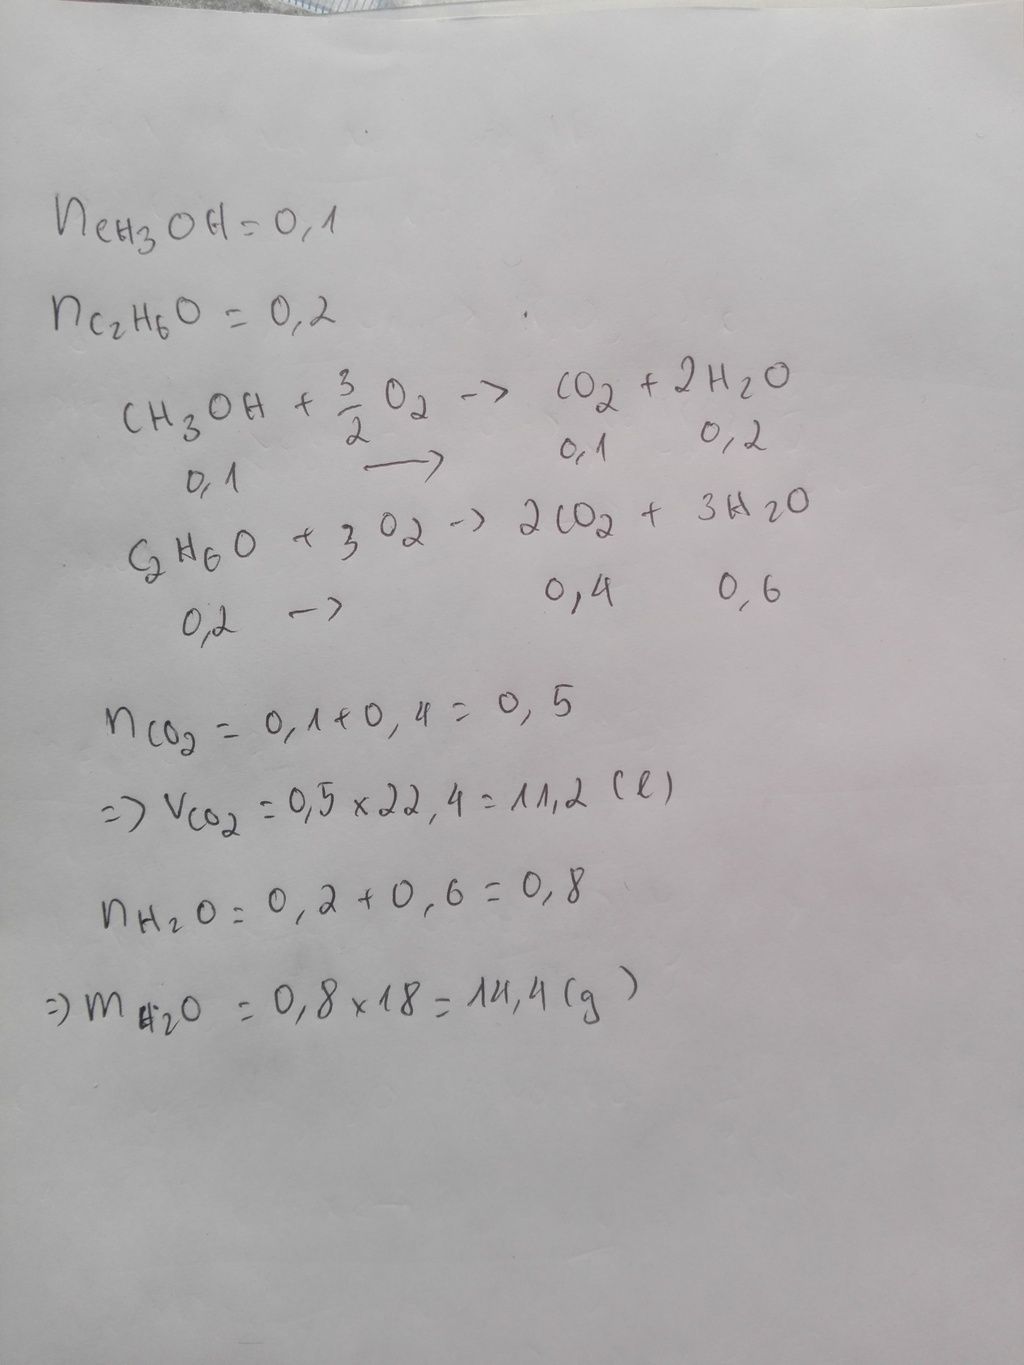 nCH3OH = 0,1
nC2H6O = 0,2
CH3OH + 3/2 O2 -> CO2 + 2H2O
0,1 -> 0,1 0,2
C2H6O + 3O2 -> 2CO2 + 3H2O
0,2 -> 0,4 0,6
nCO2 = 0,1+0,4 = 0,5
=> VCO2 = 0,5 x 22,4 = 11,2 (l)
nH2O = 0,2 + 0,6 = 0,8
=> mH2O = 0,8 x 18 = 14,4 (g)